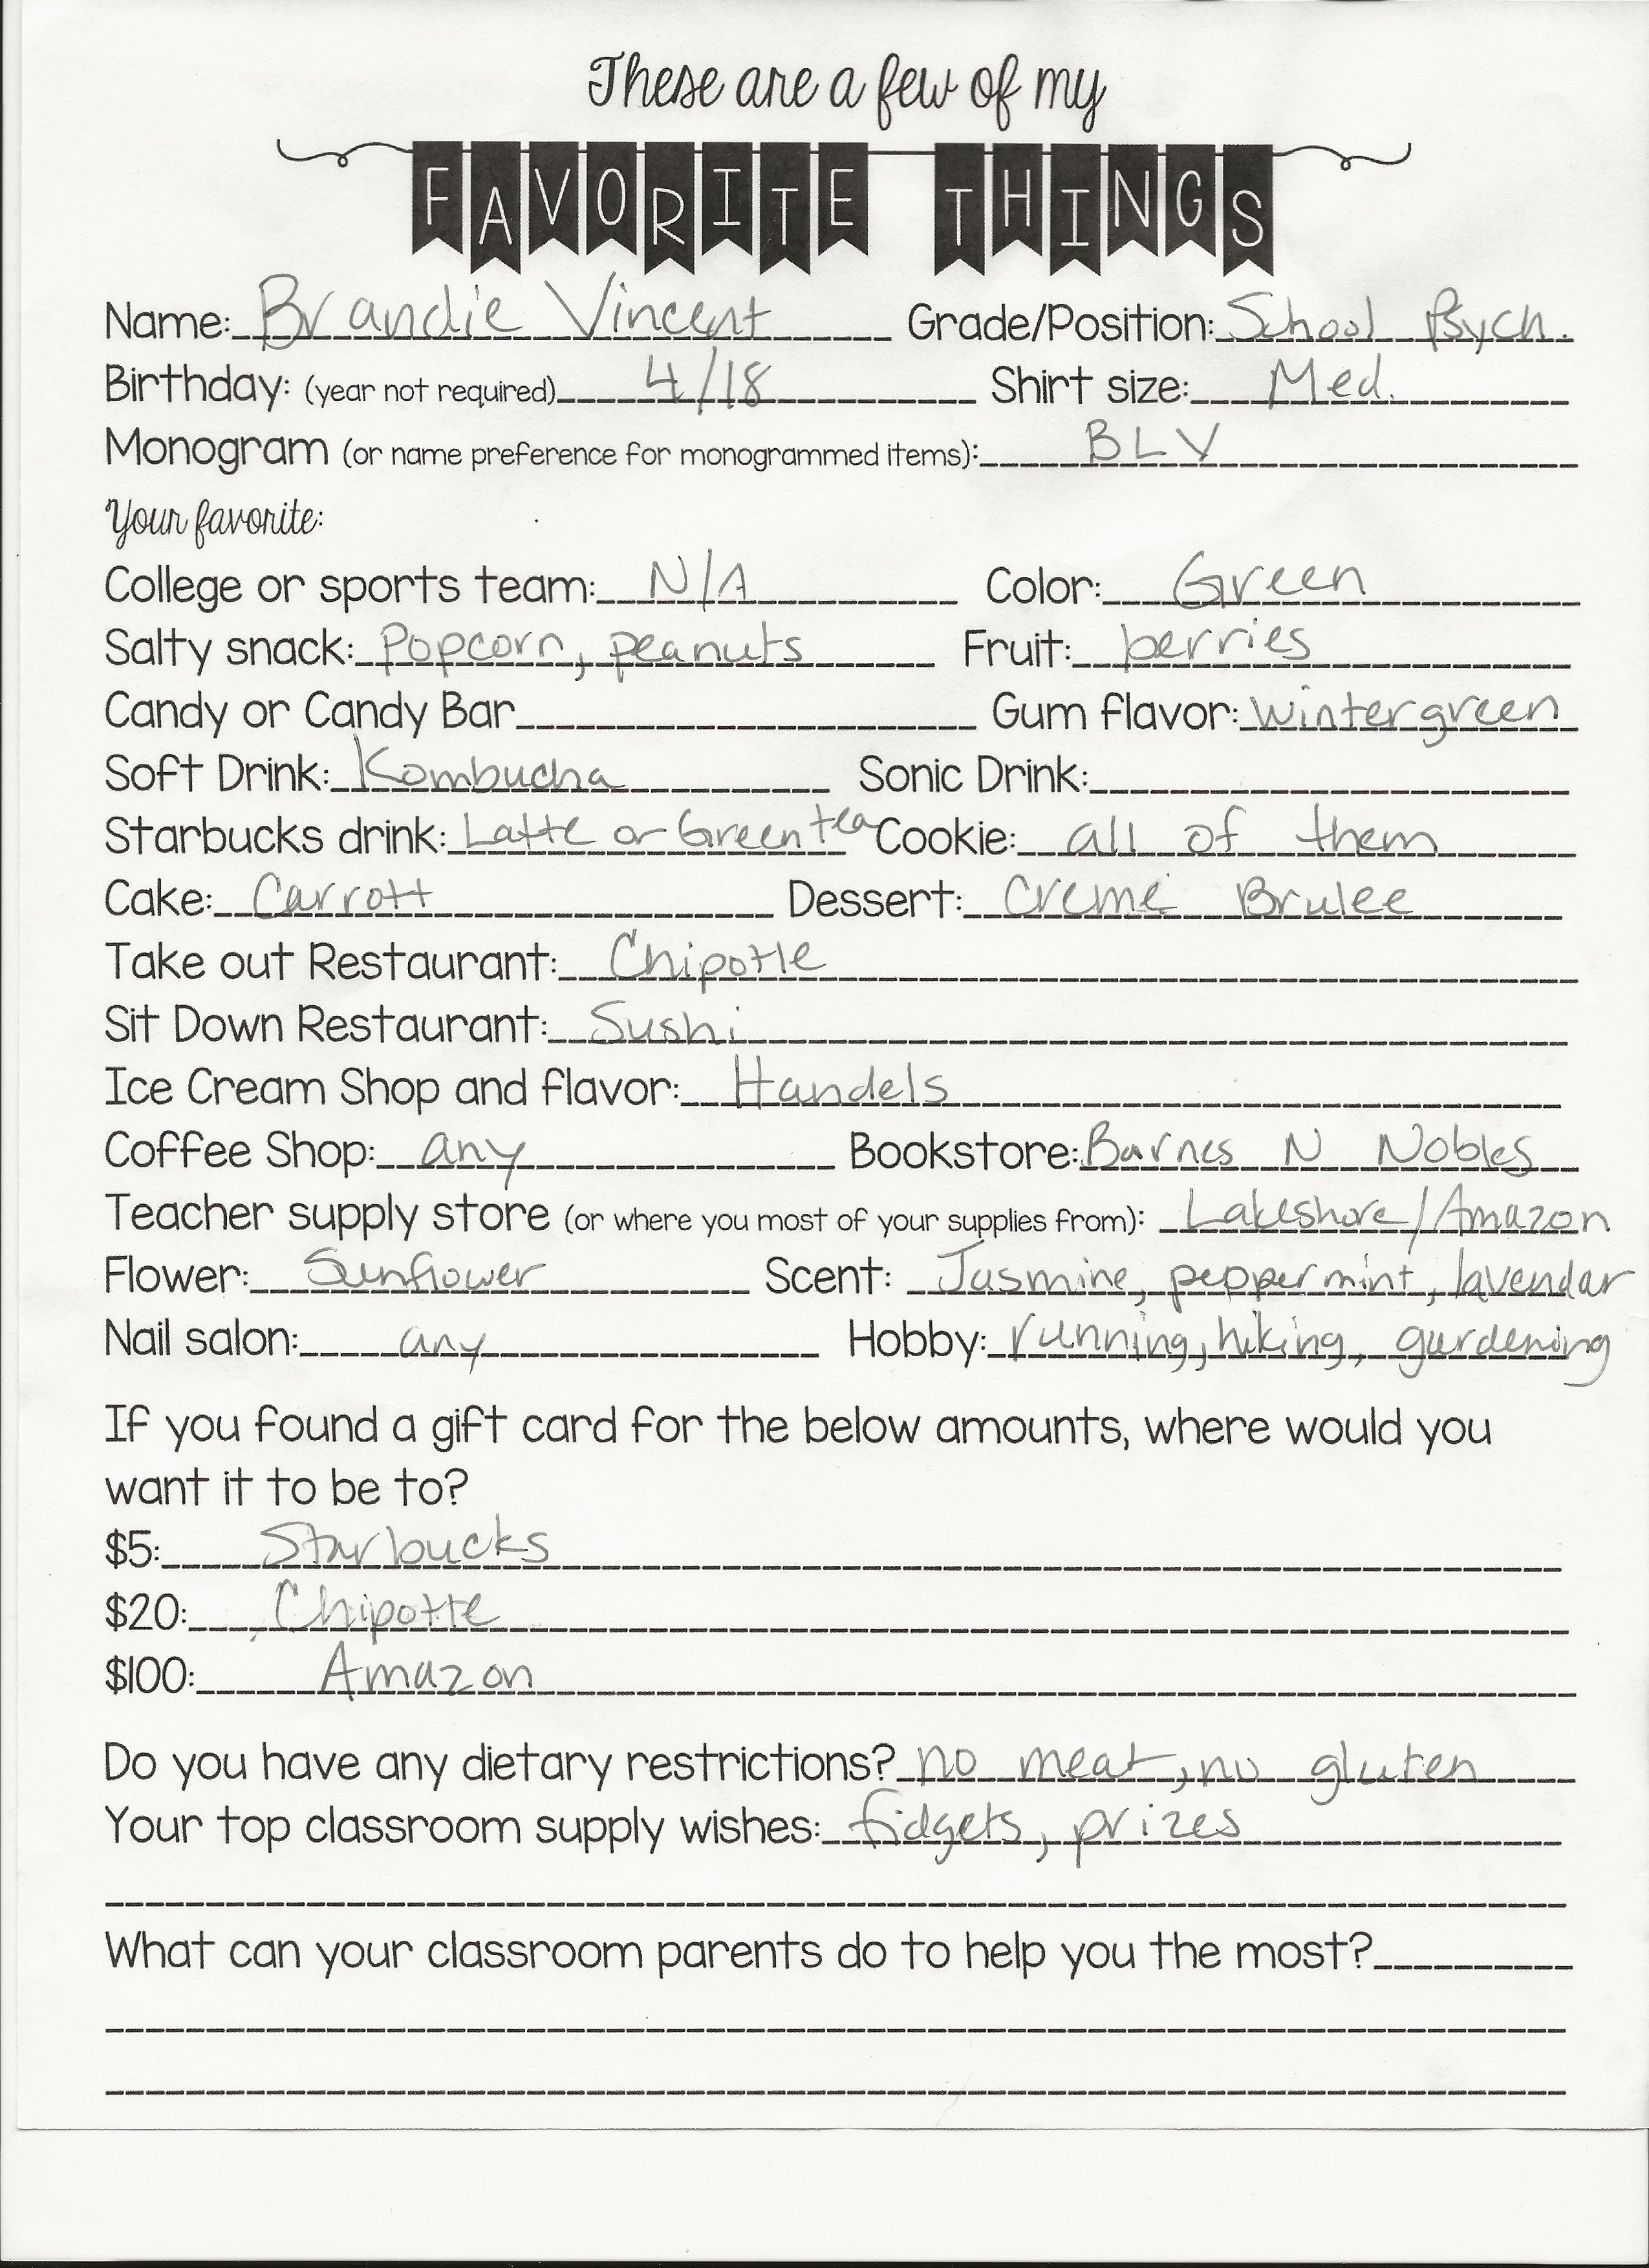 These are a few of my
FAVORITE THINGS
Name: Brandie Vincent Grade/Position: School Psych.
Birthday: (year not required) 4/18 Shirt size: Med.
Monogram (or name preference for monogrammed items): BLV
Your favorite:
College or sports team: N/A Color: Green
Salty snack: Popcorn, peanuts Fruit: berries
Candy or Candy Bar Gum flavor: wintergreen
Soft Drink: Kombucha Sonic Drink:
Starbucks drink: Latte or Green tea Cookie: all of them
Cake: Carrott Dessert: Creme Brulee
Take out Restaurant: Chipotle
Sit Down Restaurant: Sushi
Ice Cream Shop and flavor: Handels
Coffee Shop: any Bookstore: Barnes N Nobles
Teacher supply store (or where you most of your supplies from): Lakeshore/Amazon
Flower: Sunflower Scent: Jasmine, peppermint, lavendar
Nail salon: any Hobby: running, hiking, gardening
If you found a gift card for the below amounts, where would you
want it to be to?
$5: Starbucks
$20: Chipotle
$100: Amazon
Do you have any dietary restrictions? no meat, no gluten
Your top classroom supply wishes: fidgets, prizes
What can your classroom parents do to help you the most?